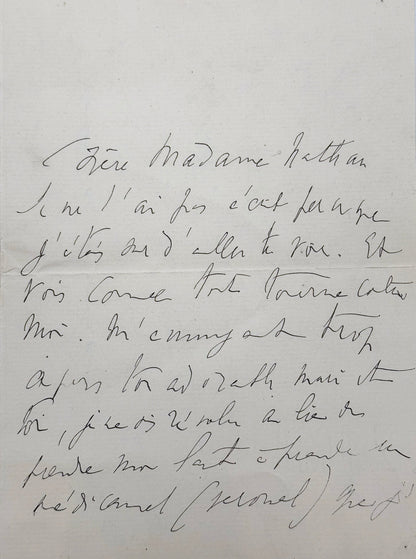 Chère Madame Nathan
Je ne t'ai pas écrit parce que
j'étais sur d'aller te voir. Et
vois comme tout tourne contre
moi. M'ennuyant trop
après ton adorable mari et
toi, je me suis résolu au lieu de
prendre mon lait à prendre un
médicament (véronal) que j'